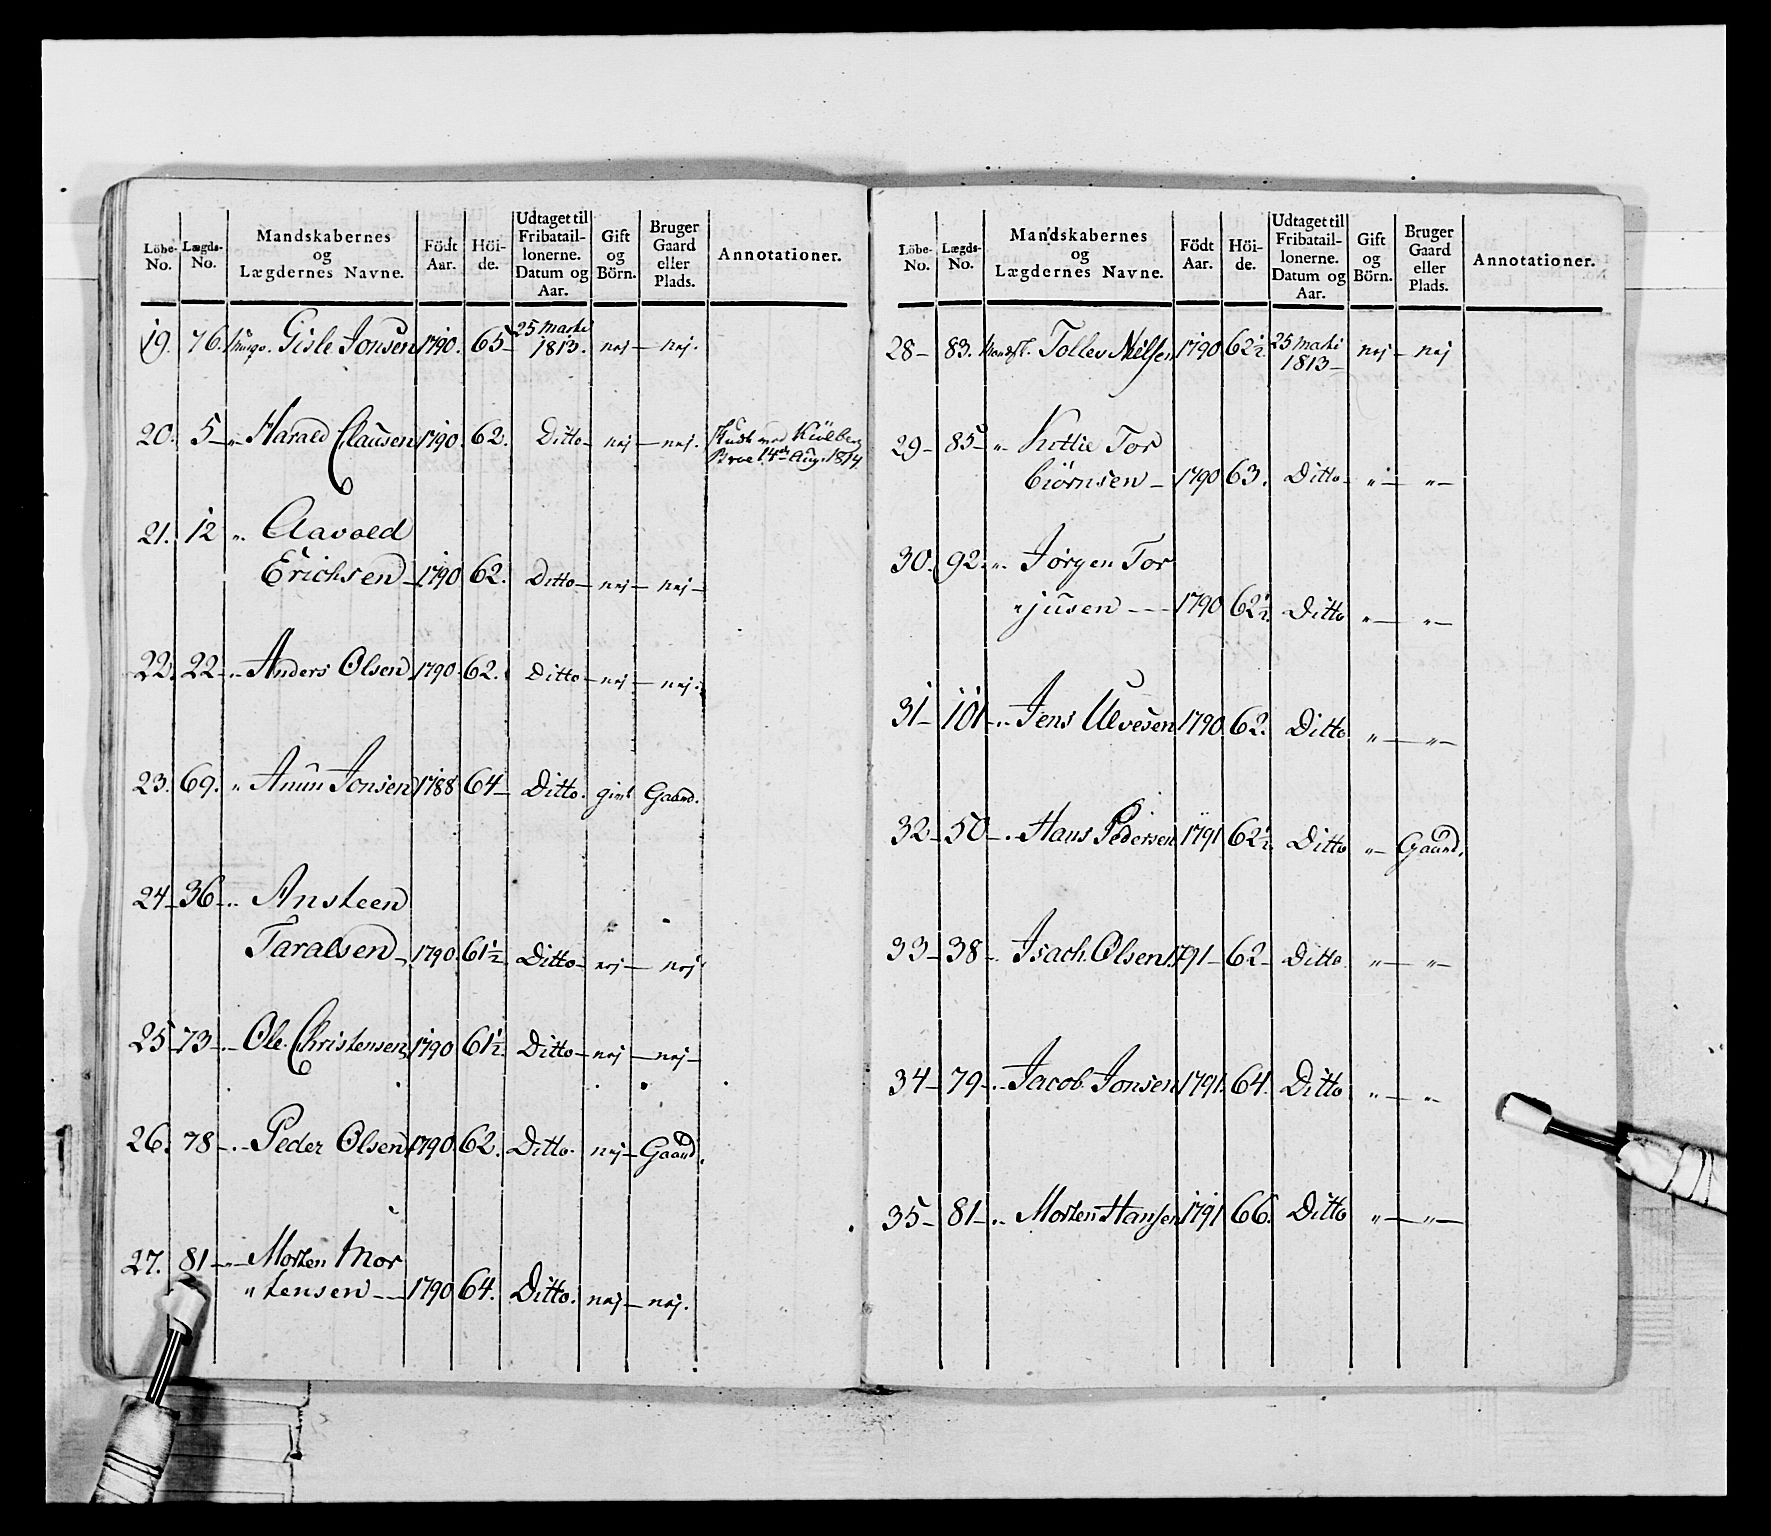 Löbe-No. Lægds-No. Mandskabernes og Lægdernes Navne. Födt Aar. Höi-de. Udtaget til Fribatail-lonerne. Datum og Aar. Gift og Börn. Bruger Gaard eller Plads. Annotationer.
19. 76. Gisle Jonsen 1790. 65– 25 Martii 1813. nej – nej.
20. 5 – „ Harald Clausen 1790. 62. Ditto – nej – nej. Skudt ved Kiölbergs Broe 14de Aug. 1814
21. 12 „ Aavold
Erichsen – 1790 62. Ditto – nej – nej –
22. 22 – „ Anders Olsen 1790. 62. Ditto – nej – nej.
23. 69. „ Anun Jonsen 1788 64 – Ditto. givt Gaard.
24 – 36 – „ Ansteen
Taralsen – 1790. 61½ Ditto – nej – nej
25 – 73 – „ Ole Christensen 1790 61½ Ditto – nej – nej –
26. 78 – „ Peder Olsen 1790 62. Ditto. nej – Gaard.
27. 81 – „ Morten Mor
„ tensen – – 1790 64. Ditto. nej – nej.
Löbe-No. Lægds-No. Mandskabernes og Lægdernes Navne. Födt Aar. Höi-de. Udtaget til Fribatail-lonerne. Datum og Aar. Gift og Börn. Bruger Gaard eller Plads. Annotationer.
28 – 83. Tollev Nielsen 1790 62½ 25 Martii 1813 – nej – nej
29 – 85 – „ Kittil Tor
biörnsen – 1790 63. Ditto – „ – „ –
30. 92. „ Jörgen Tor
„ jusen – – – 1790 62½ Ditto „ – „ –
31 – 101 – „ Jens Ulvesen 1790 62. Ditto „ – „ –
32 – 50 – „ Hans Pedersen 1791 62½ Ditto „ – Gaard.
33 – 38 – „ Isach Olsen 1791 – 62 – Ditto „ – „ –
34 – 79 – „ Jacob Jonsen 1791. 64. Ditto „ – „ –
35 – 81 – „ Morten Hansen 1791 66. Ditto „ – „ –